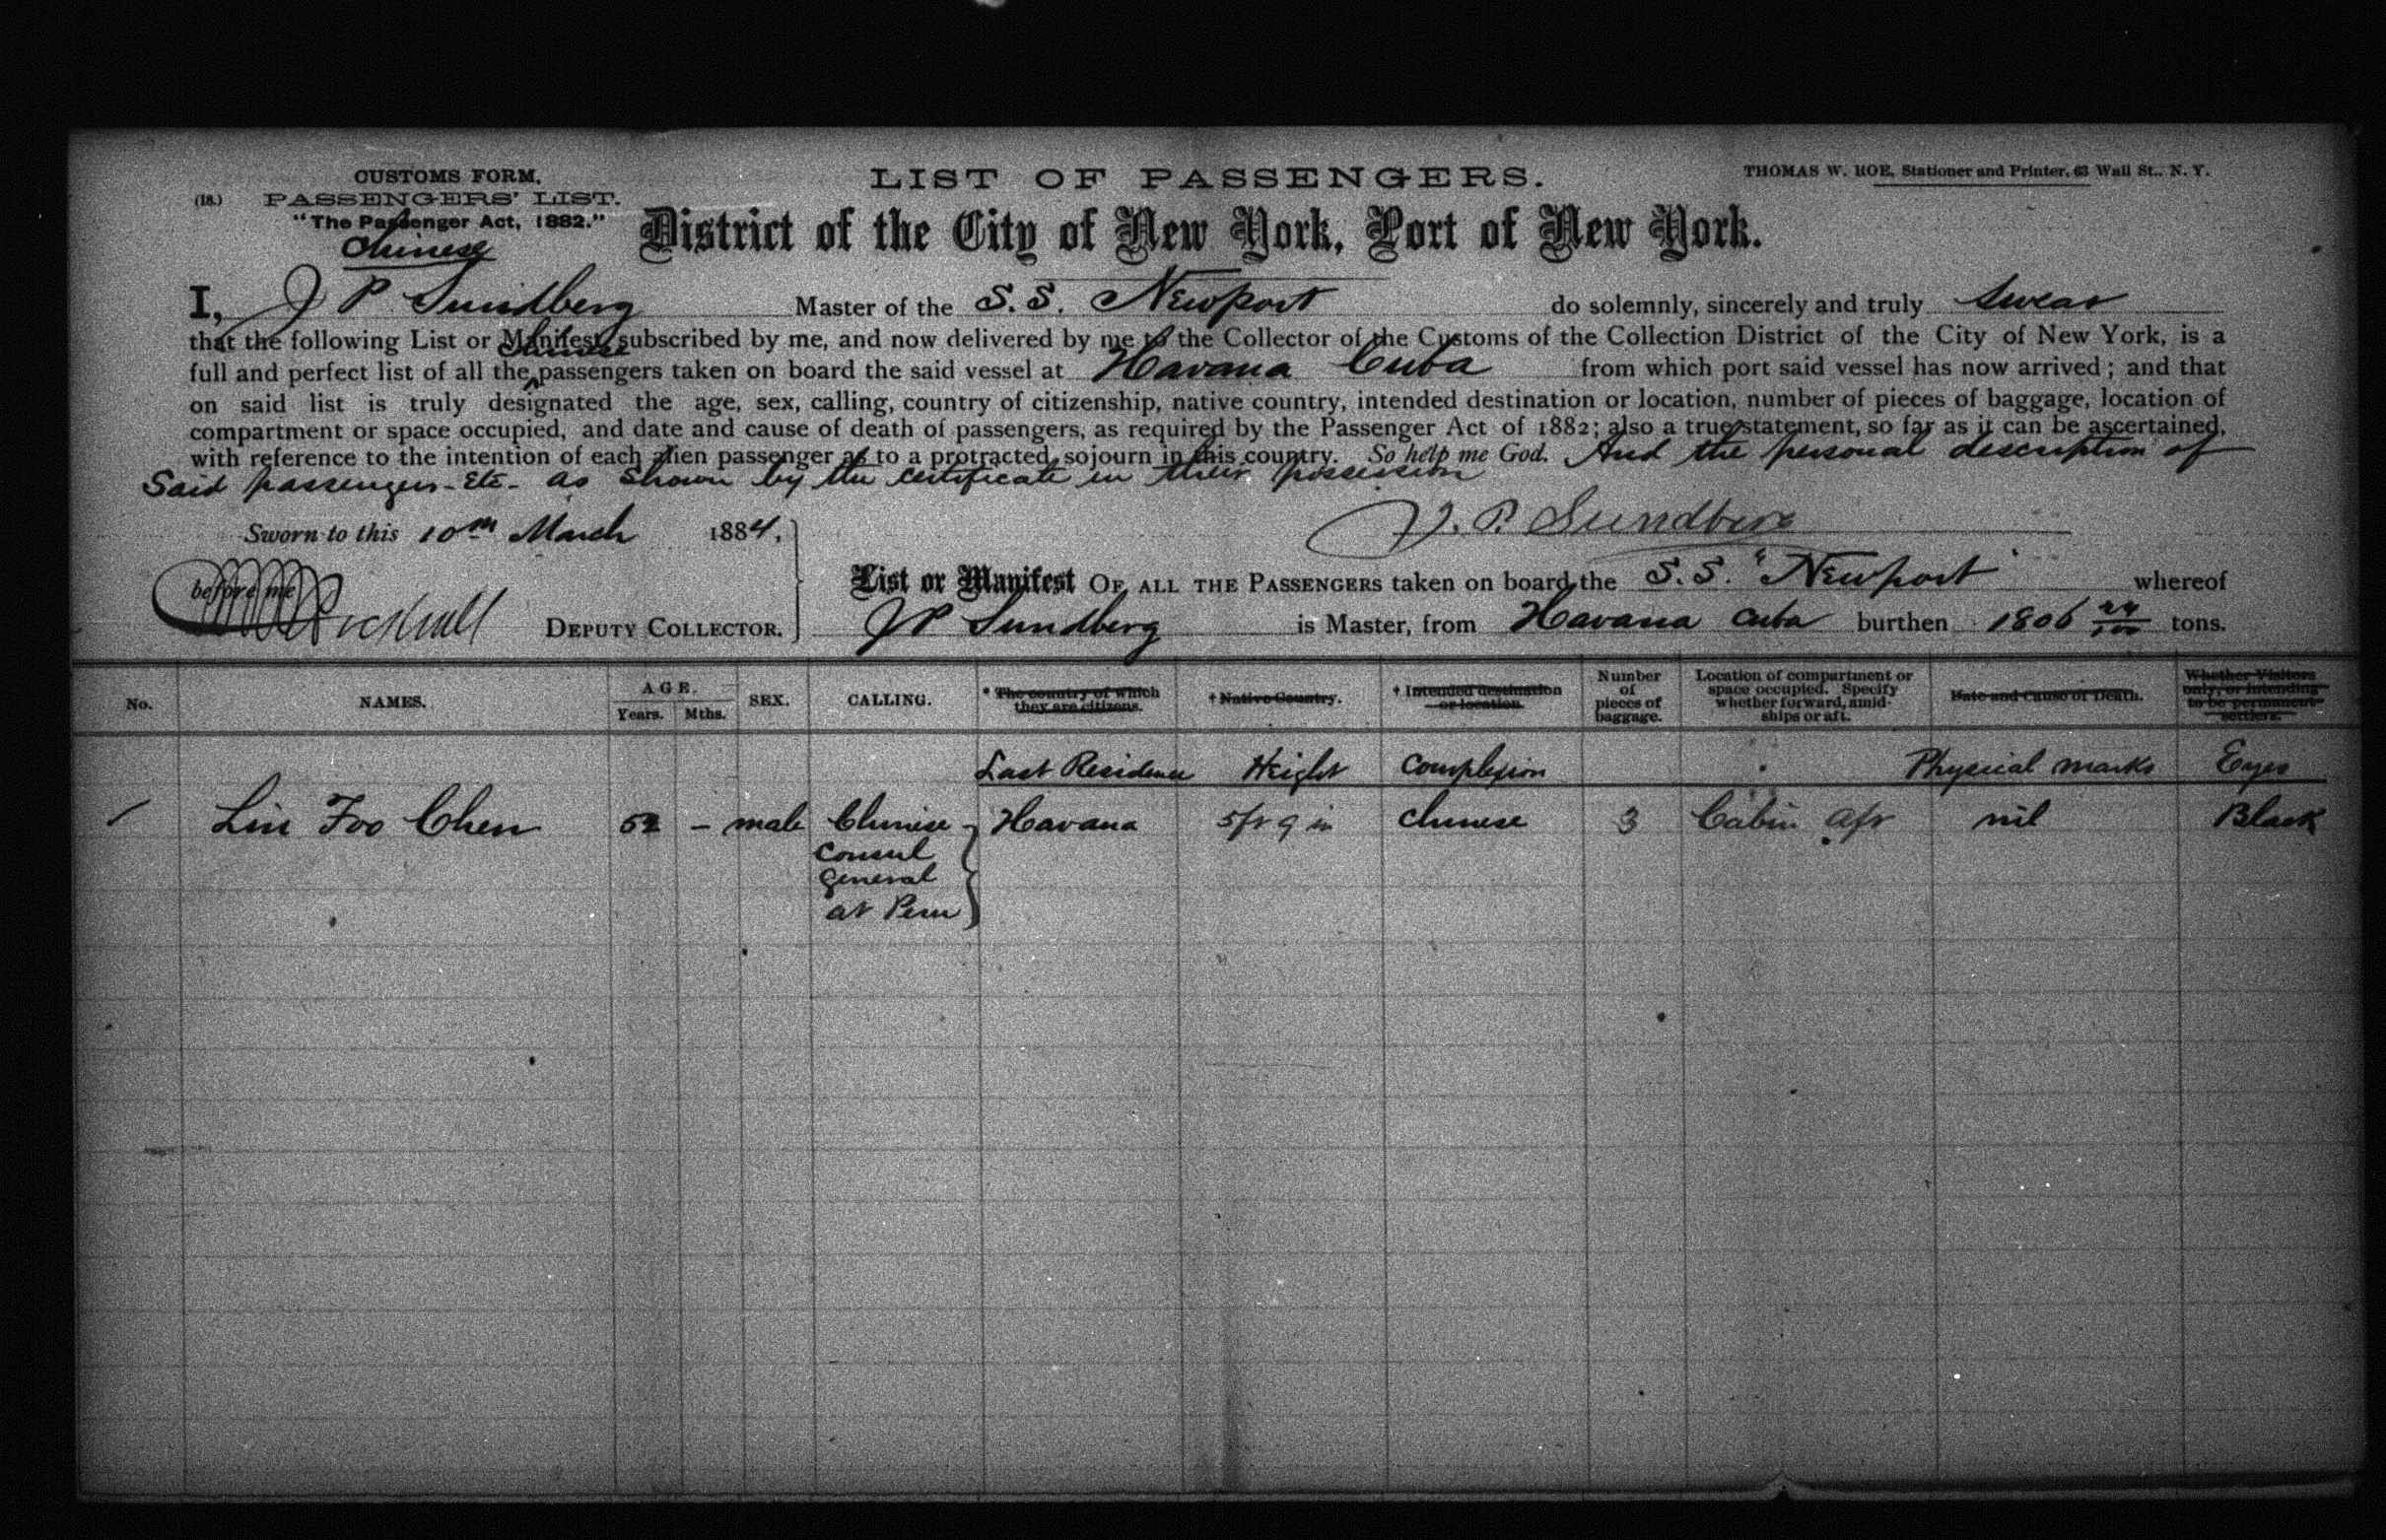 CUSTOMS FORM.
(18.) PASSENGERS' LIST.
"The Passenger Act, 1882."
Chinese
LIST OF PASSENGERS.
THOMAS W. ROE, Stationer and Printer, 63 Wall St., N. Y.
District of the City of New York, Port of New York.
I, J P Sundberg Master of the S. S. Newport do solemnly, sincerely and truly swear
that the following List or Manifest, subscribed by me, and now delivered by me to the Collector of the Customs of the Collection District of the City of New York, is a
full and perfect list of all the Chinese passengers taken on board the said vessel at Havana Cuba from which port said vessel has now arrived; and that
on said list is truly designated the age, sex, calling, country of citizenship, native country, intended destination or location, number of pieces of baggage, location of
compartment or space occupied, and date and cause of death of passengers, as required by the Passenger Act of 1882; also a true statement, so far as it can be ascertained,
with reference to the intention of each alien passenger as to a protracted sojourn in this country. So help me God. And the personal description of
Said passengers - Etc - as shown by the certificate in their possession
J. P. Sundberg
Sworn to this 10th March 1884,
before me
DEPUTY COLLECTOR.
List or Manifest OF ALL THE PASSENGERS taken on board the S. S. "Newport" whereof
J P Sundberg is Master, from Havana Cuba burthen 1806 tons.
No. NAMES. AGE. Years. Mths. SEX. CALLING. * The country of which they are citizens. † Native Country. † Intended destination or location. Number of pieces of baggage. Location of compartment or space occupied. Specify whether forward, amidships or aft. Date and Cause of Death. Whether Visitors only, or intending to be permanent settlers.
Last Residence Height Complexion Physical marks Eyes
Lin Foo Chen - male Chinese Havana 5ft 9 in Chinese 3 Cabin aft nil Black
Consul
General
at Peru